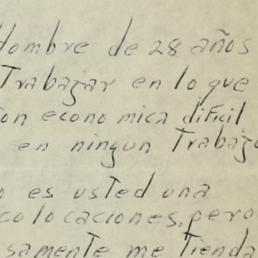 Hombre de 28 años
Trabajar en lo que
ion economica dificil
en ningun Trabajo
o es usted una
colocaciones, pero
samente me Tienda